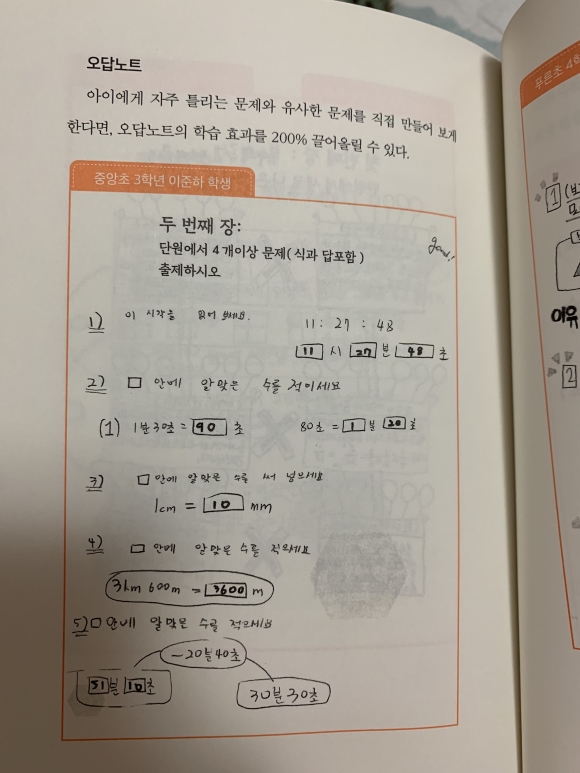 오답노트
아이에게 자주 틀리는 문제와 유사한 문제를 직접 만들어 보게
한다면, 오답노트의 학습 효과를 200% 끌어올릴 수 있다.
중앙초 3학년 이준하 학생
두 번째 장:
단원에서 4개이상 문제( 식과 답포함 )
출제하시오
good!
1) 이 시각을 읽어 보세요. 11 : 27 : 48
11 시 27 분 48 초
2) □ 안에 알맞은 수를 적이세요
(1) 1분30초 = 90 초 80초 = 1 분 20 초
3) □ 안에 알맞은 수를 써 넣으세요
1cm = 10 mm
4) □ 안에 알맞은 수를 적으세요
3km 600m = 3600 m
5) □ 안에 알맞은 수를 적으세요
-20분40초
51 분 10 초 30분 30초
푸른초 4학
1
이유
2